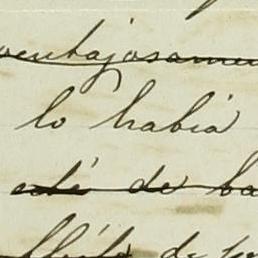 ventajosamen
lo habia
esté de ba
de